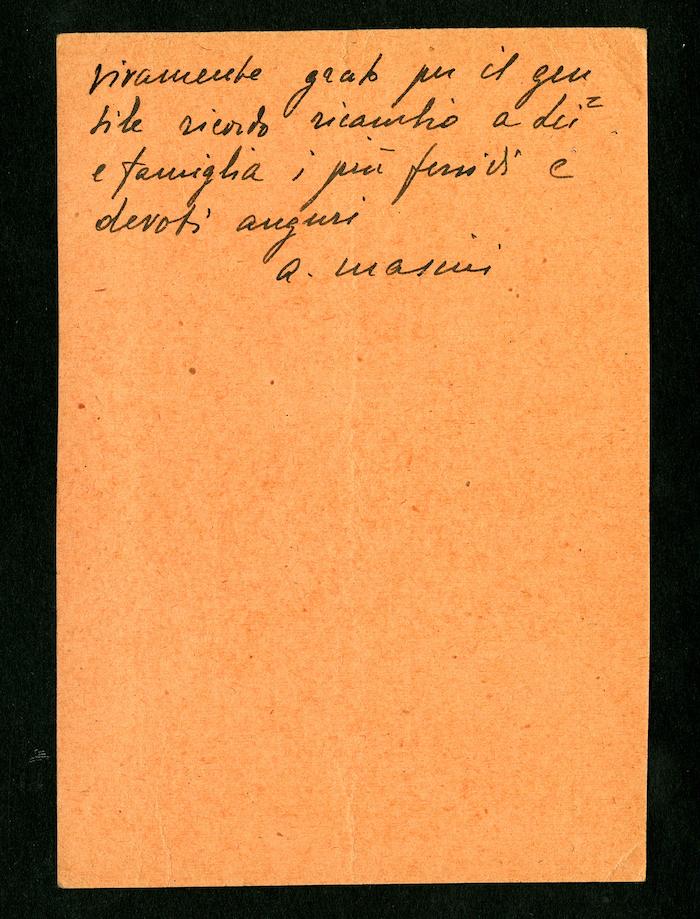 vivamente grato per il gen
tile ricordo ricambio a Lei
e famiglia i più fervidi e
devoti auguri
a. masini